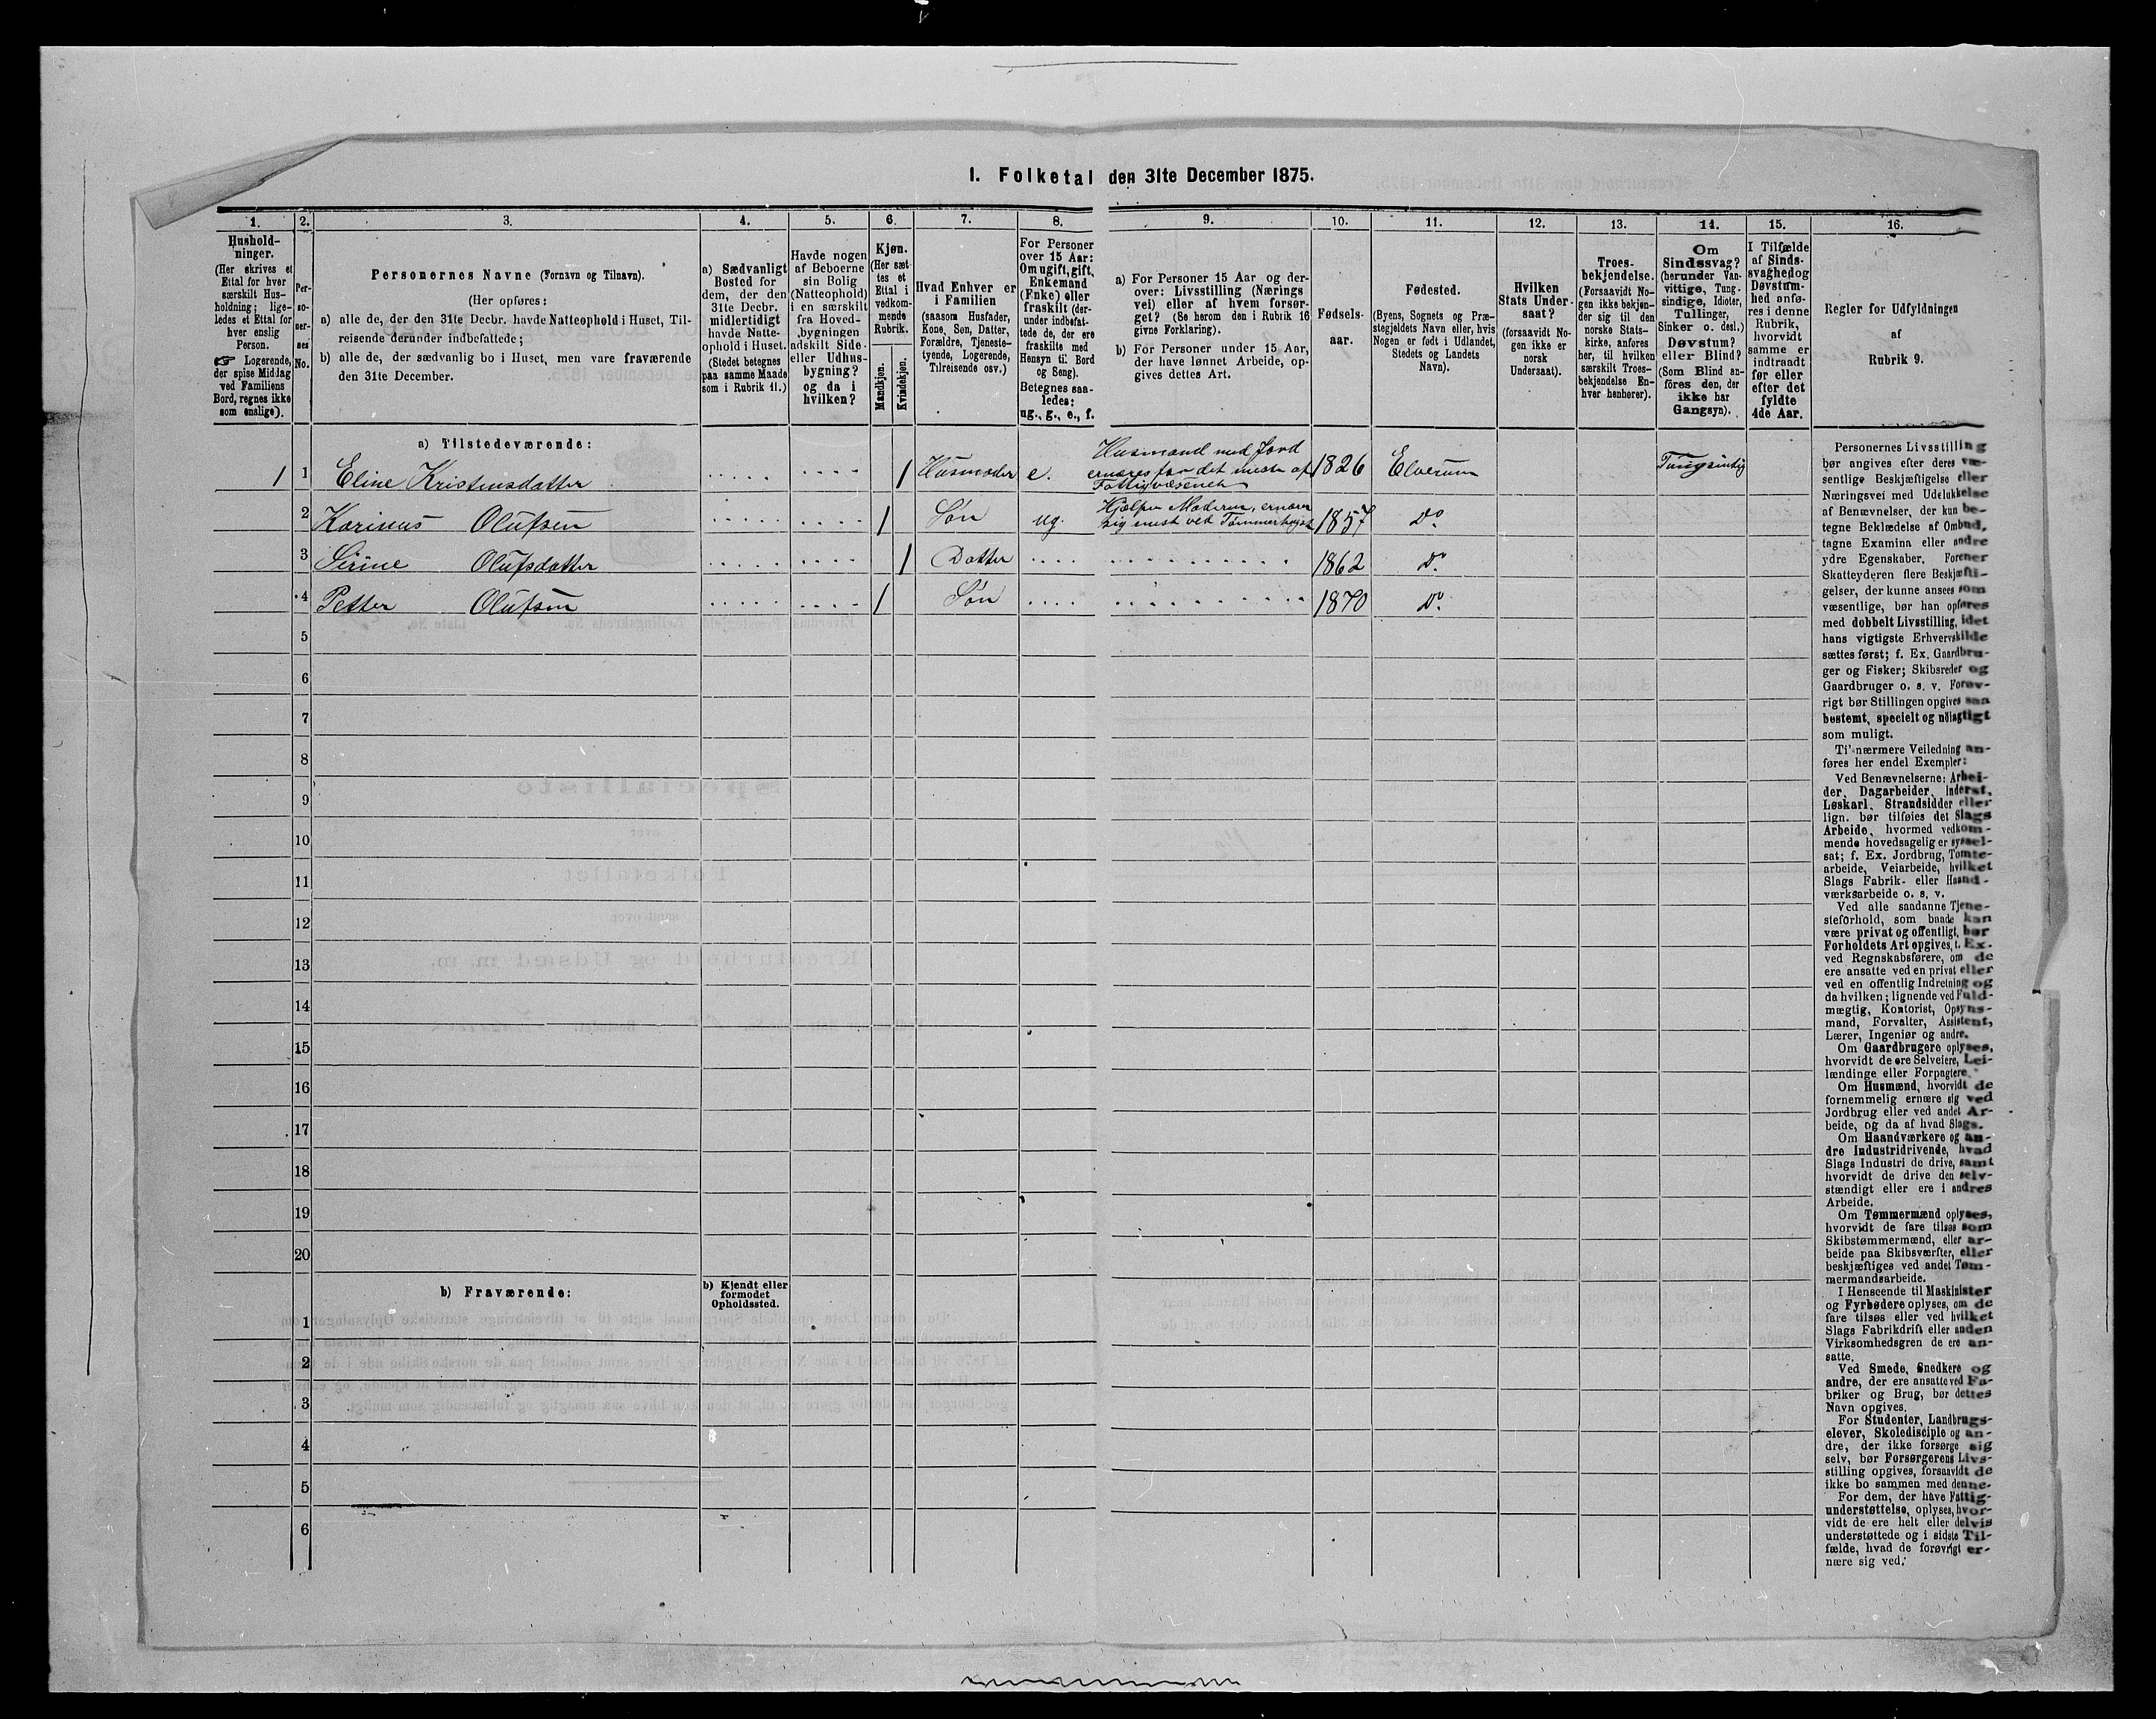 I. Folketal den 31te December 1875.
1. 2. 3. 4. 5. 6. 7. 8. 9. 10. 11. 12. 13. 14. 15. 16.
Hushold-
ninger.
(Her skrives et
Ettal for hver
særskilt Hus-
holdning; lige-
ledes et Ettal for
hver enslig
Person.
☞ Logerende,
der spise Middag
ved Familiens
Bord, regnes ikke
som enslige).
Per-
so-
ner-
nes
No.
Personernes Navne (Fornavn og Tilnavn).
(Her opføres:
a) alle de, der den 31te Decbr. havde Natteophold i Huset, Til-
reisende derunder indbefattede;
b) alle de, der sædvanlig bo i Huset, men vare fraværende
den 31te December.
a) Sædvanligt
Bosted for
dem, der den
31te Decbr.
midlertidigt
havde Natte-
ophold i Huset.
(Stedet betegnes
paa samme Maade
som i Rubrik 11.)
Havde nogen
af Beboerne
sin Bolig
(Natteophold)
i en særskilt
fra Hoved-
bygningen
adskilt Side-
eller Udhus-
bygning?
og da i
hvilken?
Kjøn.
(Her sæt
tes et
Ettal i
vedkom-
mende
Rubrik.
Mandkjøn.
Kvindekjøn.
Hvad Enhver er
i Familien
(saasom Husfader,
Kone, Søn, Datter,
Forældre, Tjeneste-
tyende, Logerende,
Tilreisende osv.)
For Personer
over 15 Aar:
Om ugift, gift,
Enkemand
(Enke) eller
fraskilt (der-
under indbefat-
tede de, der ere
fraskilte med
Hensyn til Bord
og Seng).
Betegnes saa-
ledes:
ug., g., e., f.
a) For Personer 15 Aar og der-
over: Livsstilling (Nærings
vei) eller af hvem forsør-
get? (Se herom den i Rubrik 16
givne Forklaring).
b) For Personer under 15 Aar,
der have lønnet Arbeide, op-
gives dettes Art.
Fødsels-
aar.
Fødested.
(Byens, Sognets og Præ-
stegjeldets Navn eller, hvis
Nogen er født i Udlandet,
Stedets og Landets
Navn).
Hvilken
Stats Under-
saat?
(forsaavidt No-
gen ikke er
norsk
Undersaat).
Troes-
bekjendelse.
(Forsaavidt No-
gen ikke bekjen-
der sig til den
norske Stats-
kirke, anføres
her, til hvilken
særskilt Troes-
bekjendelse En-
hver henhører).
Om
Sindssvag?
(herunder Van-
vittige, Tung-
sindige, Idioter,
Tullinger,
Sinker o. desl.)
Døvstum?
eller Blind?
(Som Blind an-
føres den, der
ikke har
Gangsyn).
I Tilfælde
af Sinds-
svaghed og
Døvstum-
hed anfø-
res i denne
Rubrik,
hvorvidt
samme er
indtraadt
før eller
efter det
fyldte
4de Aar.
Regler for Udfyldningen
af
Rubrik 9.
a) Tilstedeværende:
1 1 Eline Kristensdatter 1 Husmoder e. Husmand med Jord
ernæres for det meste af
Fattigvæsenet 1826 Elverum Tungsindig
2 Karinus Olufsen 1 Søn ug. Hjælper Moderen, ernærer
sig mest ved Tømmerhugst 1857 Do
3 Sirine Olufsdatter 1 Datter 1862 Do
4 Petter Olufsen 1 Søn 1870 Do
5
6
7
8
9
10
11
12
13
14
15
16
17
18
19
20
b) Fraværende:
b) Kjendt eller
formodet
Opholdssted.
1
2
3
4
5
6
Personernes Livsstilling
bør angives efter deres væ-
sentlige Beskjæftigelse eller
Næringsvei med Udelukkelse
af Benævnelser, der kun be-
tegne Beklædelse af Ombud,
tagne Examina eller andre
ydre Egenskaber. Forener
Skatteyderen flere Beskjæfti-
gelser, der kunne ansees som
væsentlige, bør han opføres
med dobbelt Livsstilling, idet
hans vigtigste Erhvervskilde
sættes først; f. Ex. Gaardbru-
ger og Fisker; Skibsreder og
Gaardbruger o. s. v. Forøv-
rigt bør Stillingen opgives saa
bestemt, specielt og nøiagtigt
som muligt.
Til nærmere Veiledning an-
føres her endel Exempler:
Ved Benævnelserne: Arbei-
der, Dagarbeider, Inderst,
Løskarl, Strandsidder eller
lign. bør tilføies det Slags
Arbeide, hvormed vedkom-
mende hovedsagelig er syssel-
sat; f. Ex. Jordbrug, Tomte-
arbeide, Veiarbeide, hvilket
Slags Fabrik- eller Haand-
værksarbeide o. s. v.
Ved alle saadanne Tjene-
steforhold, som baade kan
være privat og offentligt, bør
Forholdets Art opgives, f. Ex.
ved Regnskabsførere, om de
ere ansatte ved en privat eller
ved en offentlig Indretning og
da hvilken; lignende ved Fuld-
mægtig, Kontorist, Opsyns-
mand, Forvalter, Assistent,
Lærer, Ingeniør og andre.
Om Gaardbrugere oplyses,
hvorvidt de ere Selveiere, Lei-
lændinge eller Forpagtere.
Om Husmænd, hvorvidt de
fornemmelig ernære sig ved
Jordbrug eller ved andet Ar-
beide, og da af hvad Slags.
Om Haandværkere og an-
dre Industridrivende, hvad
Slags Industri de drive, samt
hvorvidt de drive den selv-
stændigt eller ere i andres
Arbeide.
Om Tømmermænd oplyses,
hvorvidt de fare tilsøs som
Skibstømmermænd, eller ar-
beide paa Skibsværfter, eller
beskjæftiges ved andet Tøm-
mermandsarbeide.
I Henseende til Maskinister
og Fyrbødere oplyses, om de
fare tilsøs eller ved hvilket
Slags Fabrikdrift eller anden
Virksomhedsgren de ere an-
satte.
Ved Smede, Snedkere og
andre, der ere ansatte ved Fa-
briker og Brug, bør dettes
Navn opgives.
For Studenter, Landbrugs-
elever, Skoledisciple og an-
dre, der ikke forsørge sig
selv, bør Forsørgerens Livs-
stilling opgives, forsaavidt de
ikke bo sammen med denne.
For dem, der have Fattig-
understøttelse, oplyses, hvor-
vidt de ere helt eller delvis
understøttede og i sidste Til-
fælde, hvad de forøvrigt er-
nære sig ved.